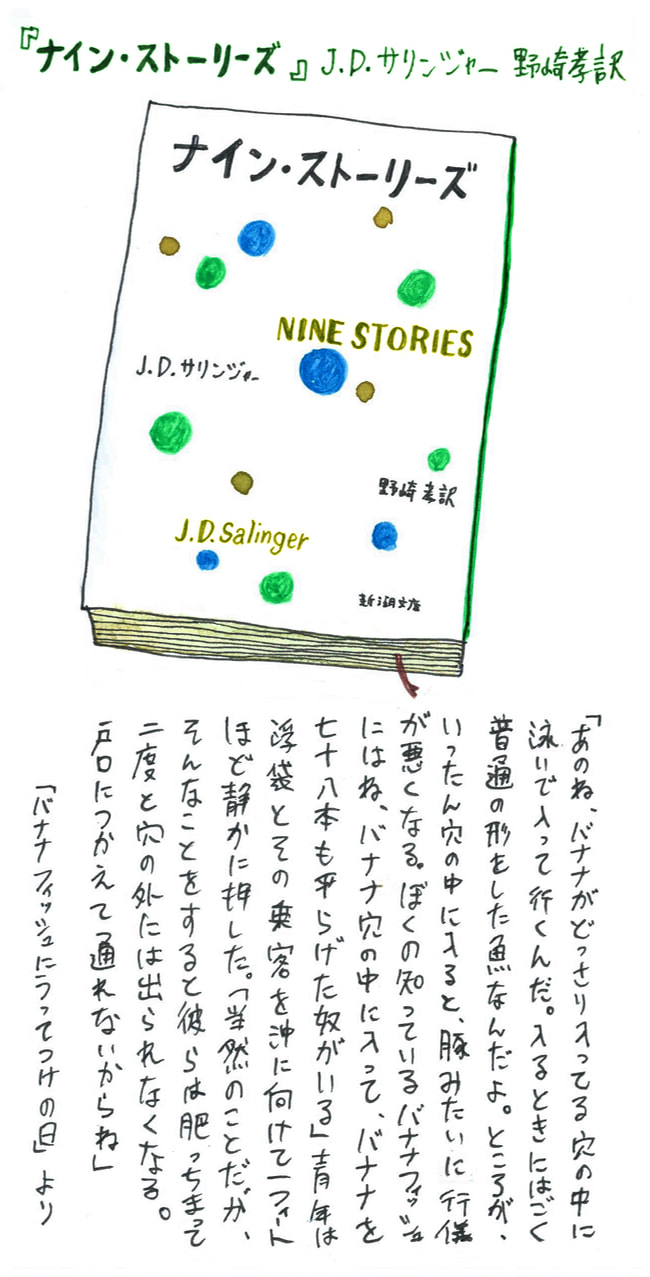 『ナイン・ストーリーズ』J.D.サリンジャー 野崎孝訳
ナイン・ストーリーズ
NINE STORIES
J.D.サリンジャー
野崎孝訳
J.D.Salinger
新潮文庫
「あのね、バナナがどっさり入ってる穴の中に
泳いで入って行くんだ。入るときにはごく
普通の形をした魚なんだよ。ところが、
いったん穴の中に入ると、豚みたいに行儀
が悪くなる。ぼくの知っているバナナフィッシュ
にはね、バナナ穴の中に入って、バナナを
七十八本も平らげた奴がいる」青年は
浮袋とその乗客を沖に向けて一フィート
ほど静かに押した。「当然のことだが、
そんなことをすると彼らは肥っちまって
二度と穴の外には出られなくなる。
戸口につかえて通れないからね」
「バナナフィッシュにうってつけの日」より